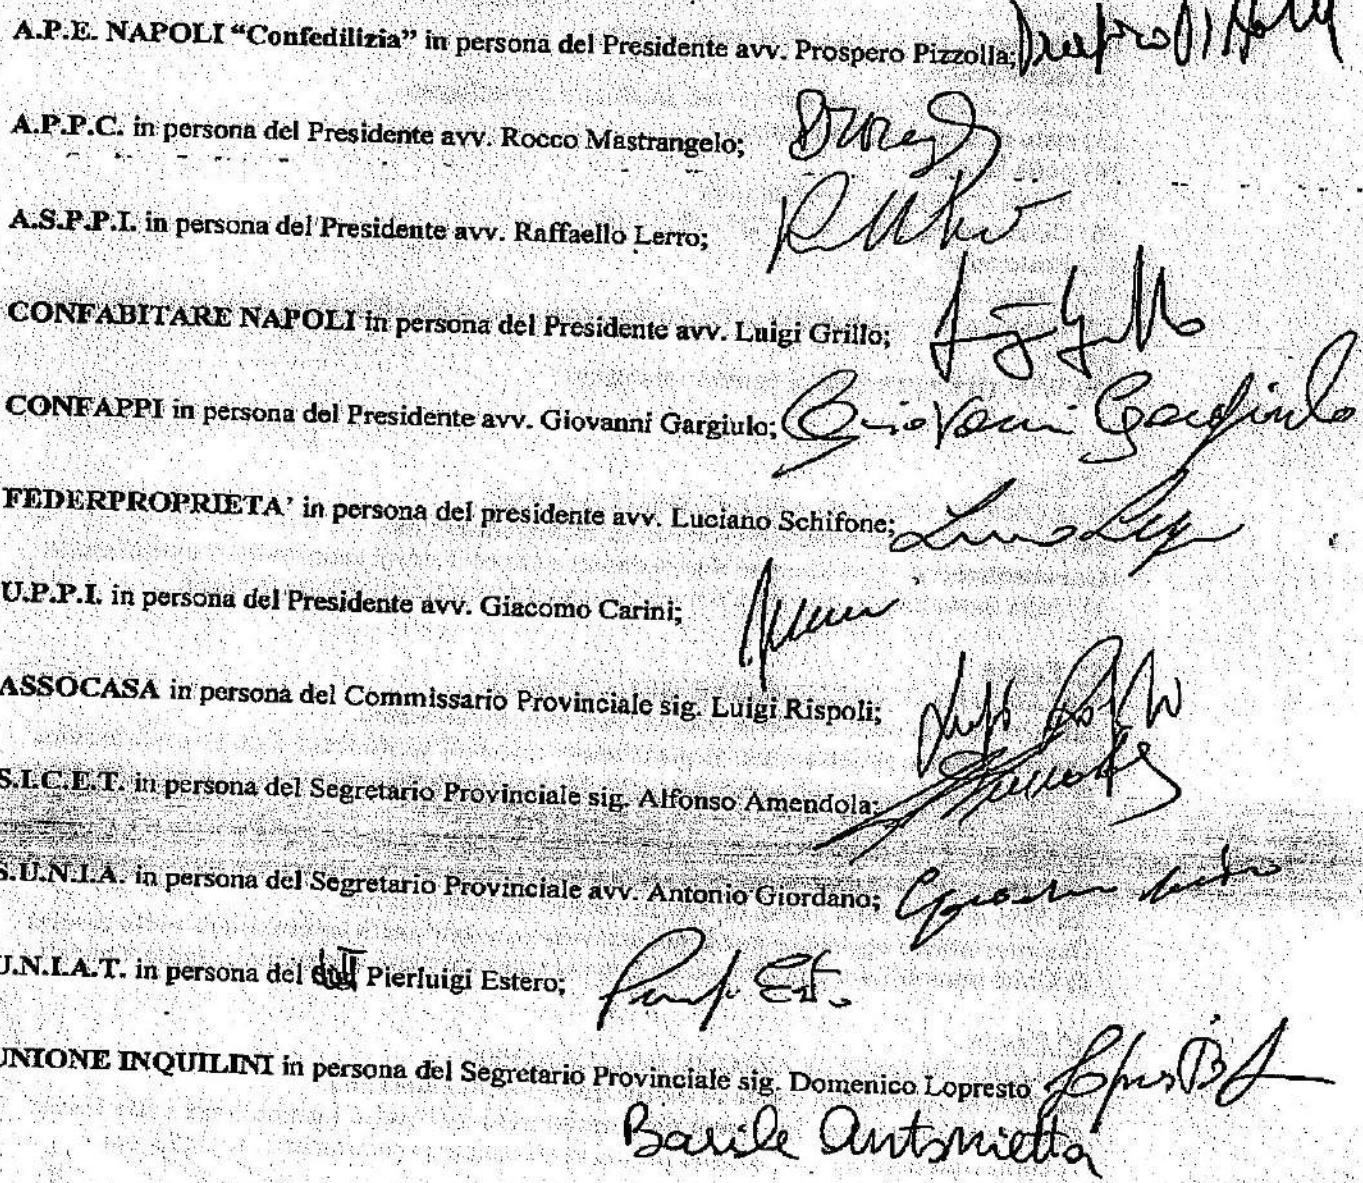 A.P.E. NAPOLI “Confedilizia” in persona del Presidente avv. Prospero Pizzolla;
A.P.P.C. in persona del Presidente avv. Rocco Mastrangelo;
A.S.P.P.I. in persona del Presidente avv. Raffaello Lerro;
CONFABITARE NAPOLI in persona del Presidente avv. Luigi Grillo;
CONFAPPI in persona del Presidente avv. Giovanni Gargiulo; Giovanni Gargiulo
FEDERPROPRIETA’ in persona del presidente avv. Luciano Schifone;
U.P.P.I. in persona del Presidente avv. Giacomo Carini;
ASSOCASA in persona del Commissario Provinciale sig. Luigi Rispoli;
S.I.C.E.T. in persona del Segretario Provinciale sig. Alfonso Amendola;
S.U.N.I.A. in persona del Segretario Provinciale avv. Antonio Giordano;
U.N.I.A.T. in persona del Pierluigi Estero;
UNIONE INQUILINI in persona del Segretario Provinciale sig. Domenico Lopresto
Basile Antonietta